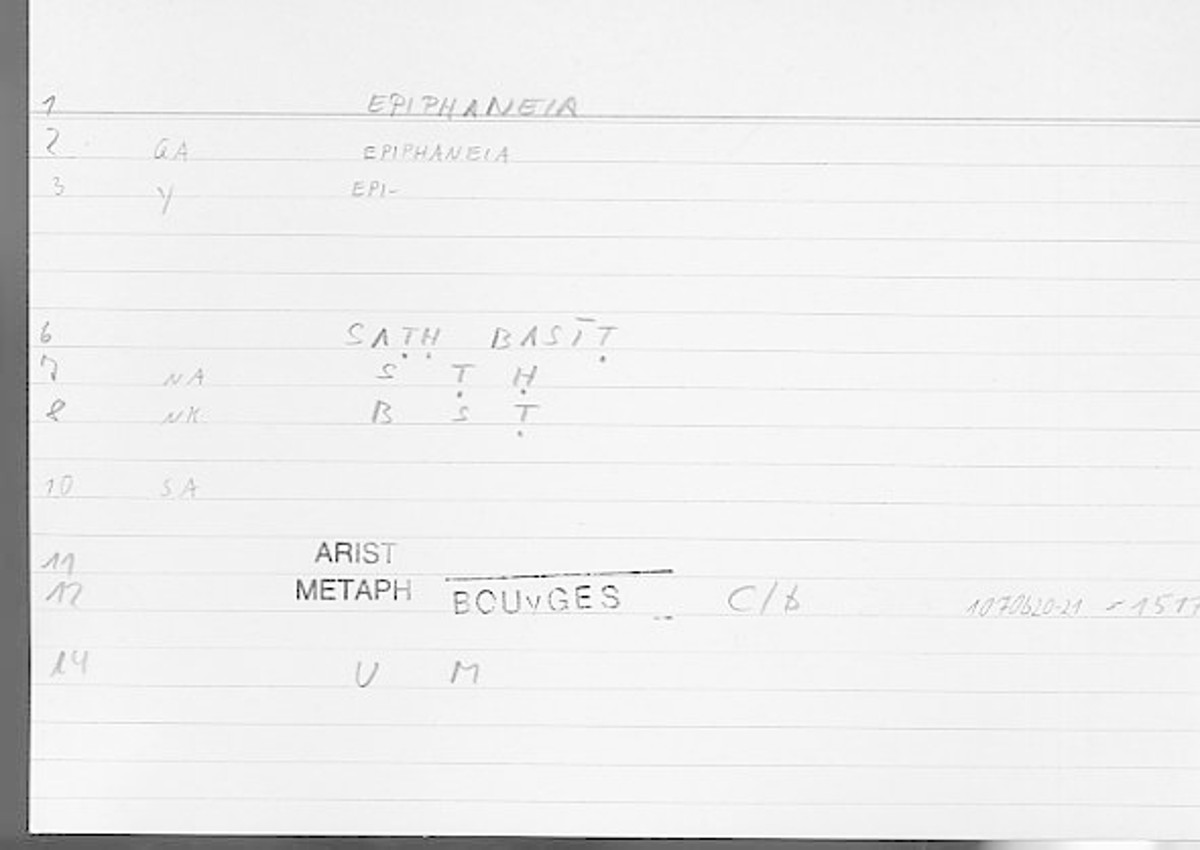 1 EPIPHANEIA
2 GA EPIPHANEIA
3 Y EPI-
6 SAṬḤ BASĪṬ
7 NA S Ṭ Ḥ
8 NK B S Ṭ
10 SA
11 ARIST
12 METAPH BOUYGES C/b 1070b20-21
14 U M